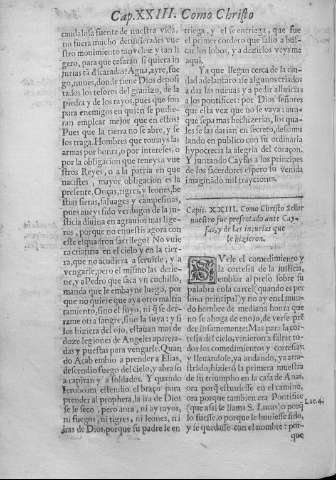 Cap. XXIII. Como Christo
caudalosa fuente de nuestra vida,
no fuera mucho deciendo
stro movimiento tan veloz y tan li
gero, para que cesaran si quiera in
jurias tã dicandas? Agua, ayre, fue
go, nunes, donde tiene Dios deposi
tados los tesoros del granizo, de la
piedra y de los rayos, pues que son
para enemigos en quien se pudie
ran emplear mejor que en estos?
Pues que la tierra no se abre, y se
los traga. Hombres que tomays las
armas por honra, o por interese, o
por la obligacion que teneys a vue
stros Reyes, o a la patria en que
nacistes, mayor obligacion es la
presente. Onças, tigres, y leones, be
stias fieras, saluages y campesinas,
pues aueys sido verdugos de la ju-
sticia diuina en agrauios mas lige-
ros, por que no
este esquadron sacrilego? No vuie
ra criatura en el cielo y en la tie
rra, que no acudiera a seruirle, y a
vengarle, pero el mismo las detie-
ne, y a Pedro que saca vn cuchillo,
manda que le embayne luego, por
que no quiere que aya otro martire
tamiento, sino el suyo, ni q̃ se der-
rame otra sangre, sino la suya: y si
los hiziera del ojo, estauan mas de
doze legiones de Angeles aparecia
das y puestas para vengarle. Quan
do Acab embio a prender a Elias,
descendio fuego del cielo, y abraso
a capitan y a soldados. Y quando
Ieroboam estendio el braço para
prender al propheta, la ira de Dios
se le seco, pero aqui, ni ay rayos,
ni fuegos, ni tigres, ni leones, ni
iras de Dios, porque su padre le en
triega, y el se entriega, que fue
el primer cordero que salio a bus-
car los lobos, y a dezirles veyme
aqui.
Ya que llegan cerca de la ciu
dad adelantarõse algunos criados
a dar las nueuas y a pedir albricias
a los pontifices: por Dios señores
que esta vez que no se vaya: aun-
que sepa mas hechizerias, los qua-
les se las darian en secreto, dissimu
lando en publico con su ordinaria
hypocrecia la alegria del coraçon.
Y juntando Cayfas a los principes
de los sacerdotes espero su venida
imaginando mil trayciones.
Capit. XXIIII. Como Christo Señor
nuestro fue presentado ante Cay-
fas, y de las injurias que
le hizieron.
SVele el comedimiento y
la cortesia de la justicia,
embiar a preso sobre su
palabra a la carcel (quando es per
sona principal) y no ay en el mun
do hombre de mediana honra que
no se venda de enojo, de verse pré
der infamemente: Mas para la cor
tesia del cielo, vinieron a faltar to
dos los comedimientos y cortesias:
y lleuandole, ya andando, ya arra
strado, hizieró la primera muestra
de su triumpho en la casa de Anas,
ora porq̃ estuuiesse en el camino,
ora porque tambien era Pontifice
(que assi le llama S. Lucas) o por q̃
lo fuesse, o porque lo huuiesse sido,
y se quedasse con el nombre: por-
que
Luc. 4.